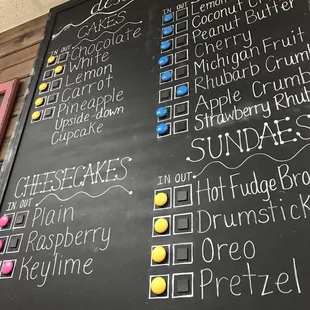 CAKES
IN OUT
Chocolate
White
Lemon
Carrot
Pineapple
Upside-down
Cupcake
CHEESECAKES
IN OUT
Plain
Raspberry
Keylime
Lemon
Coconut
Peanut Butter
Cherry
Michigan Fruit
Rhubarb Crumb
Apple Crumb
Strawberry Rhub
SUNDAES
IN OUT
Hot Fudge Bro
Drumstick
Oreo
Pretzel